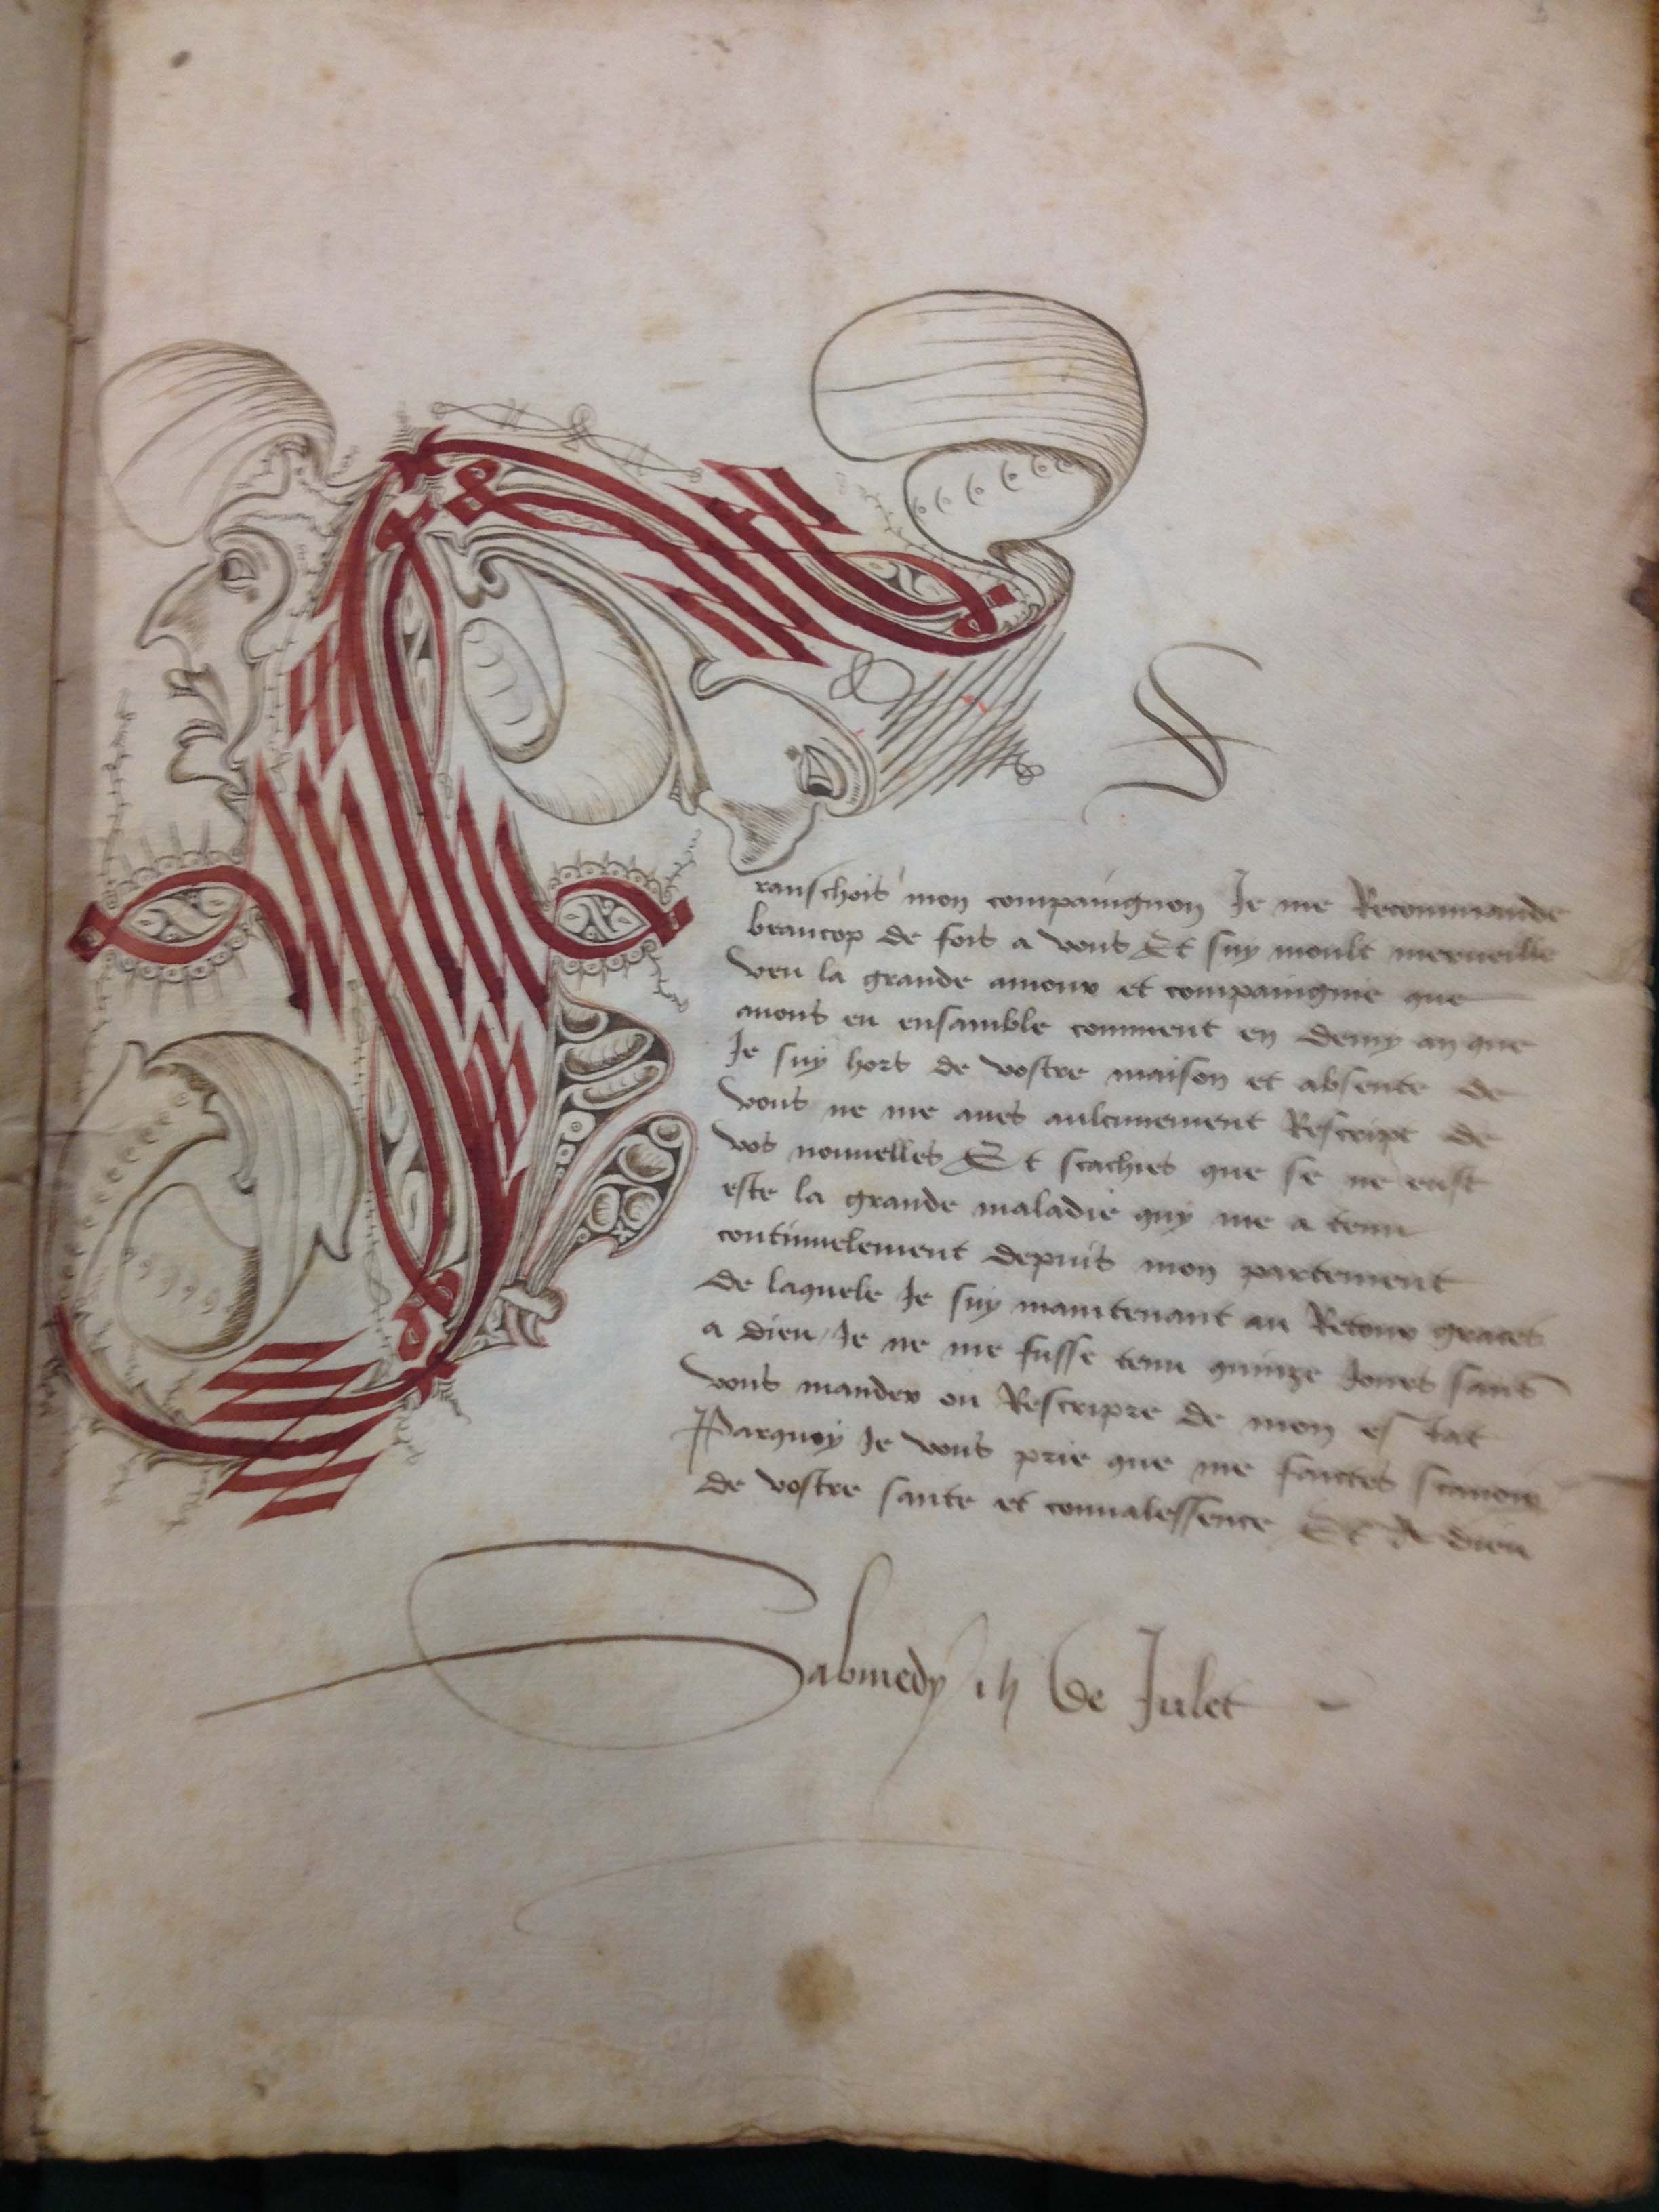 F
ranschois mon compaingnon Je me Recommande
beaucop de fois a vous Et suy moult merueillie
veu la grande amour et compaingnie que
auons eu ensamble comment en demy an que
Je suy hors de vostre maison et absente de
vous ne me aues aulcunement Rescript de
vos nouuelles Et scachies que se ne eust
este la grande maladie quy me a tenu
continuelement depuis mon partement
de laquele Je suy maintenant au Retour graces
a dieu Je ne me fusse tenu quinze Jours sans
vous mander ou Rescripre de mon estat
Parquoy Je vous prie que me faictes scauoir
de vostre sante et conualessence Et A dieu
Sabmedy de Julet